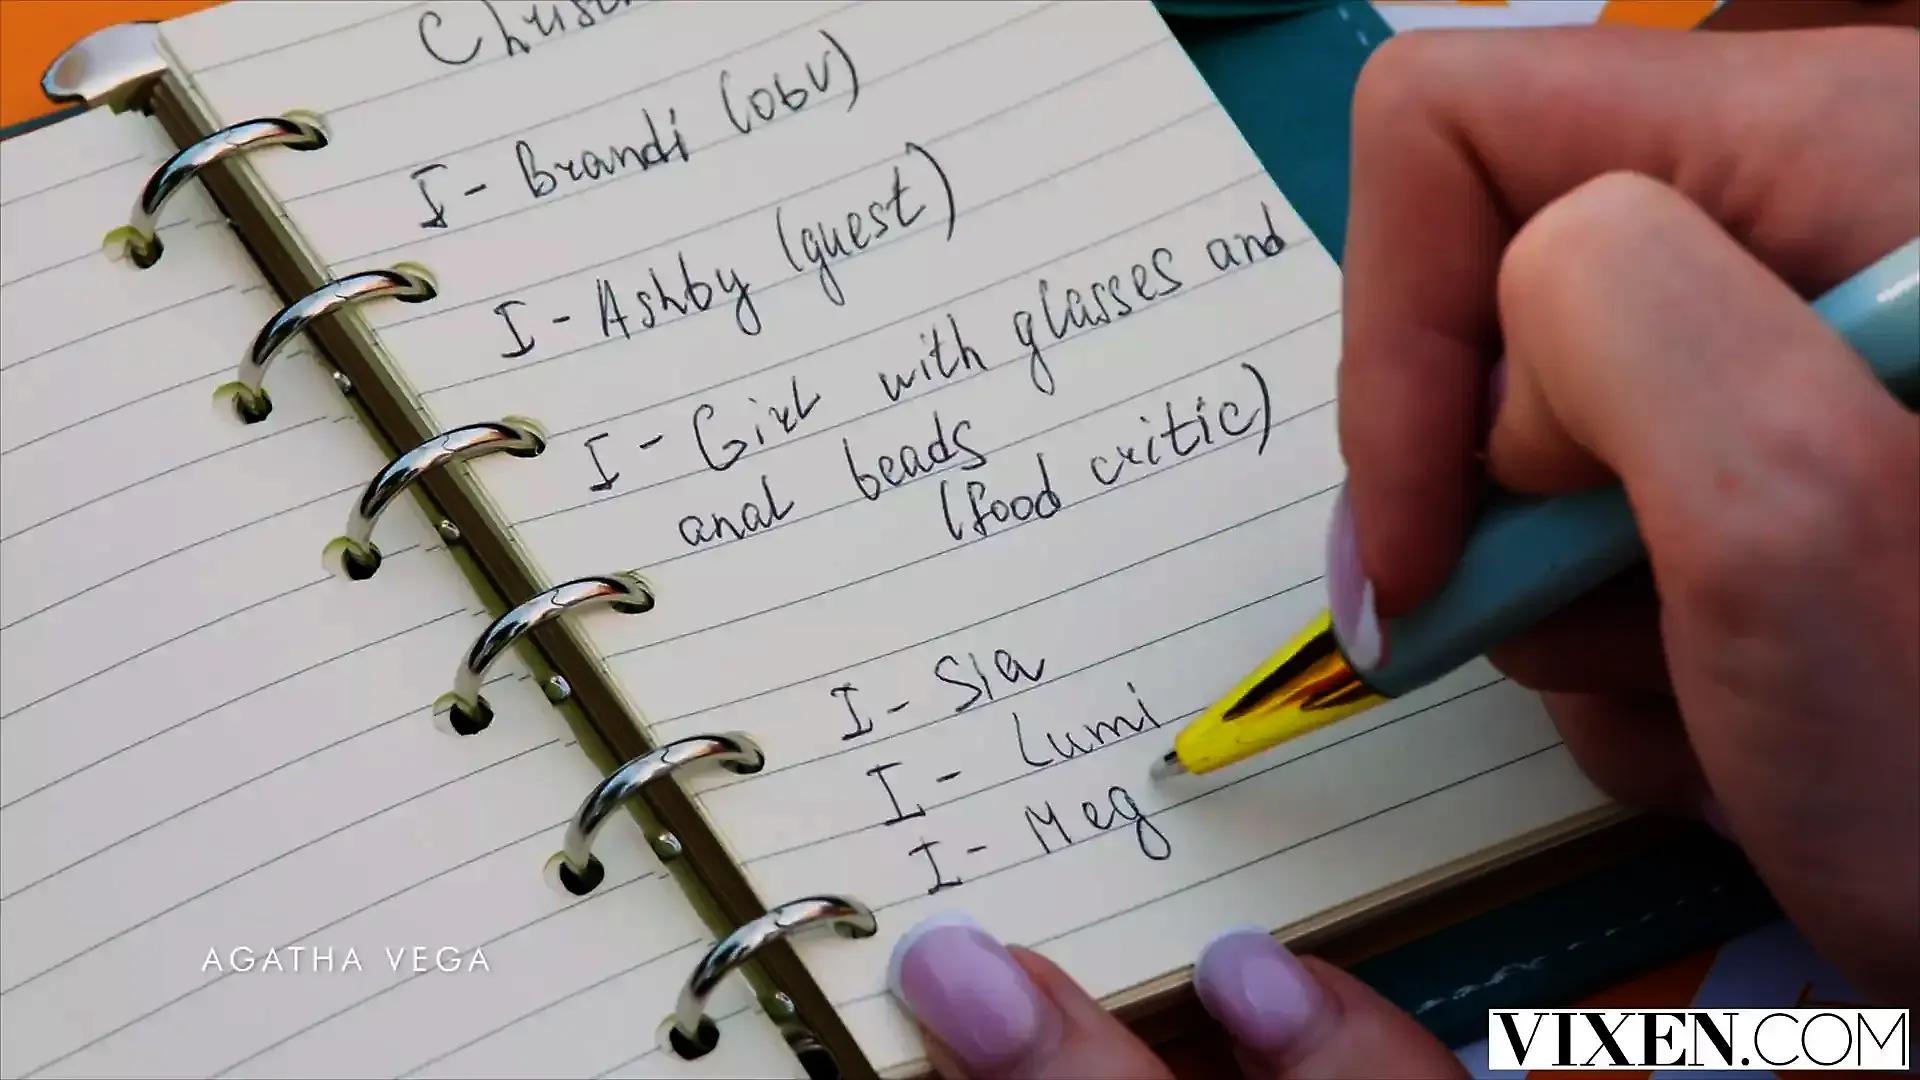 I - Brandi (obv)
I - Ashby (guest)
I - Girl with glasses and
anal beads
(food critic)
I - Sia
I - Lumi
I - Meg
AGATHA VEGA
VIXEN.COM